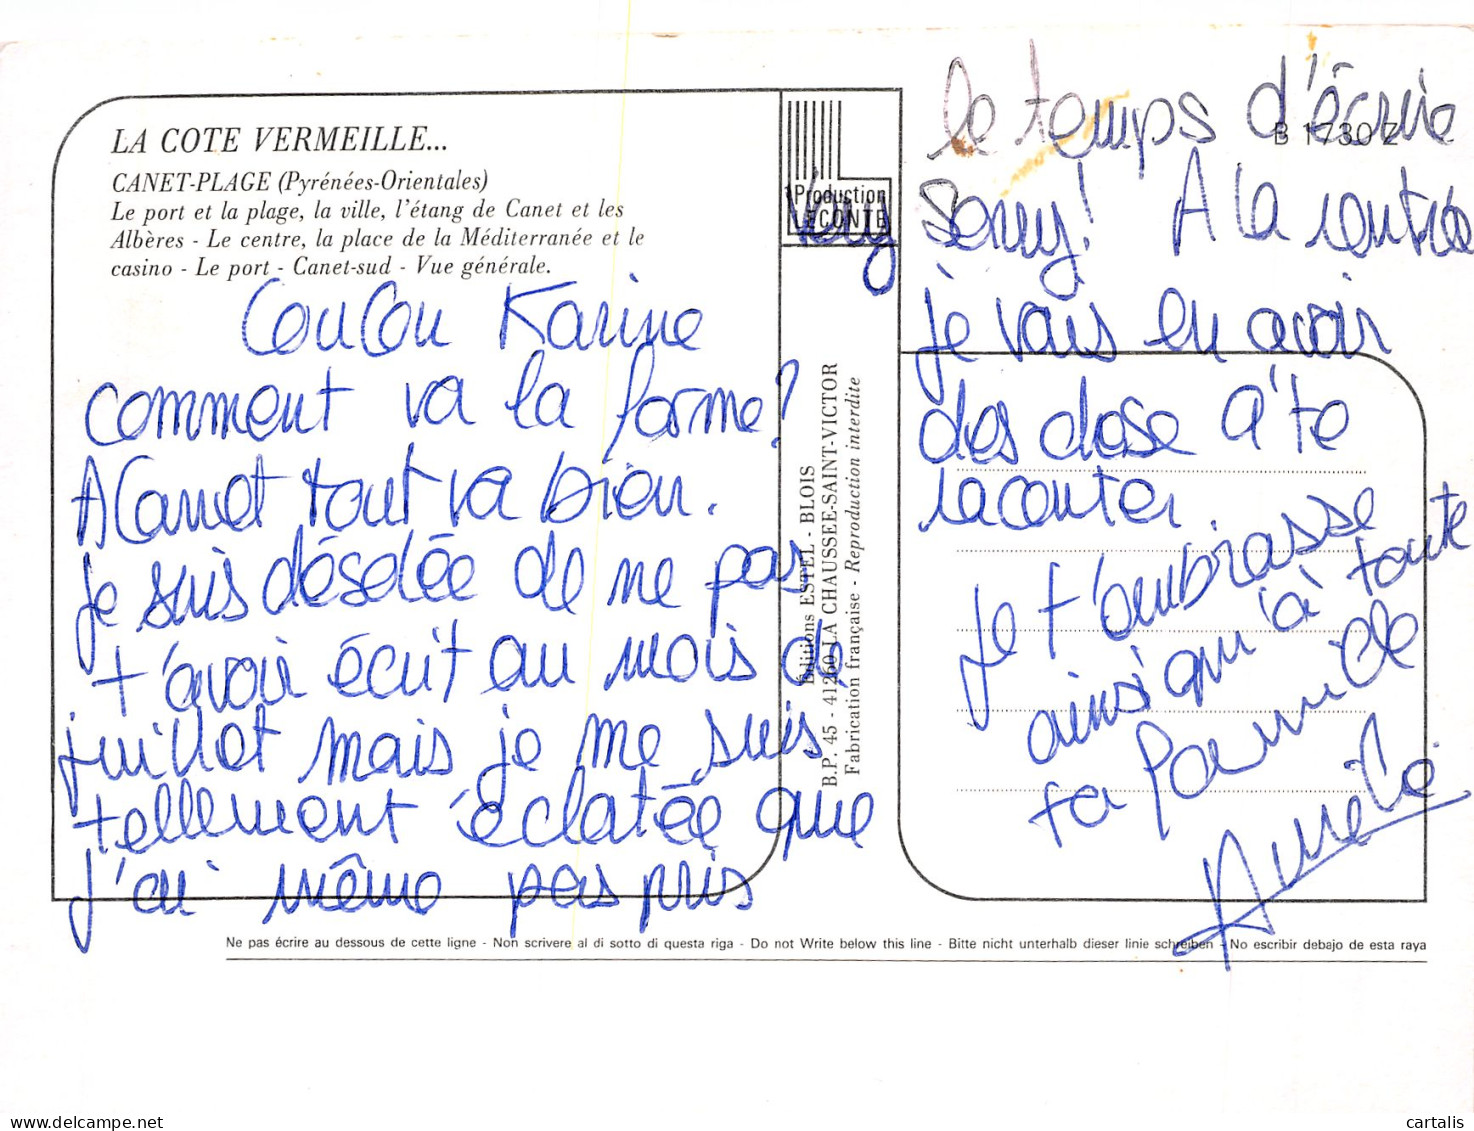 LA COTE VERMEILLE...
CANET-PLAGE (Pyrénées-Orientales)
Le port et la plage, la ville, l'étang de Canet et les
Albères - Le centre, la place de la Méditerranée et le
casino - Le port - Canet-sud - Vue générale.
Coucou Karine
comment va la forme?
A Canet tout va bien.
Je suis désolée de ne pas
t'avoir écrit au mois de
juillet mais je me suis
tellement éclatée que
j'ai même pas pris
Production
LECONTE
Éditions ESTEL - BLOIS
B.P. 45 - 41260 LA CHAUSSEE-SAINT-VICTOR
Fabrication française - Reproduction interdite
B 1730 Z
le temps d'écrire
Very sorry! A la rentrée
je vais en avoir
des chose à te
raconter.
Je t'embrasse
ainsi qu'à toute
ta famille
Aurélie.
Ne pas écrire au dessous de cette ligne - Non scrivere al di sotto di questa riga - Do not Write below this line - Bitte nicht unterhalb dieser linie schreiben - No escribir debajo de esta raya
delcampe.net
cartalis